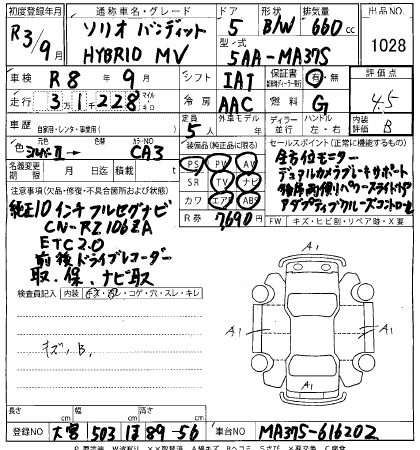 初度登録年月 通称車名・グレード ドア 形状 排気量 出品NO
R3/9月 ソリオ バンディット HYBRID MV 5 B/W 660cc 1028
型式 5AA-MA37S
車検 R8年9月 シフト IAT 保証書 有・無 評価点
走行 3万1千228 マイル キロ 冷房 AAC 燃料 G 4.5
車歴 自家用・レンタ・事業用( ) 定員 5人 外車モデル年 ディーラー 並行 ハンドル 左・右 内装 B
色 シルバーII 元色 替色 カラーNO CA3 装備品(純正品に限る) セールスポイント(正常に機能するもの)
名義変更期限 月 日 リサイクル預託金 PS PW AW
全方位モニター
デュアルカメラブレーキサポート
SR TV ナビ
両側パワースライドドア
カワ エアB ABS
アダプティブクルーズコントロール
R券 7,690 FW キズ・ヒビ割・リペア跡・X要
注意事項(欠品・修復・不具合箇所および状態)
純正10インチフルセグナビ
CN-RZ106ZA
ETC2.0
前後ドライブレコーダー
取、保、ナビ取ス
検査員記入 内装 キズ・汚レ・コゲ・穴・スレ・キレ
キズ、B、
A1
A1 A1
A1
長さ cm 幅 cm 高さ cm
登録NO 大宮 503 ほ 89-56 車台NO MA37S-616202